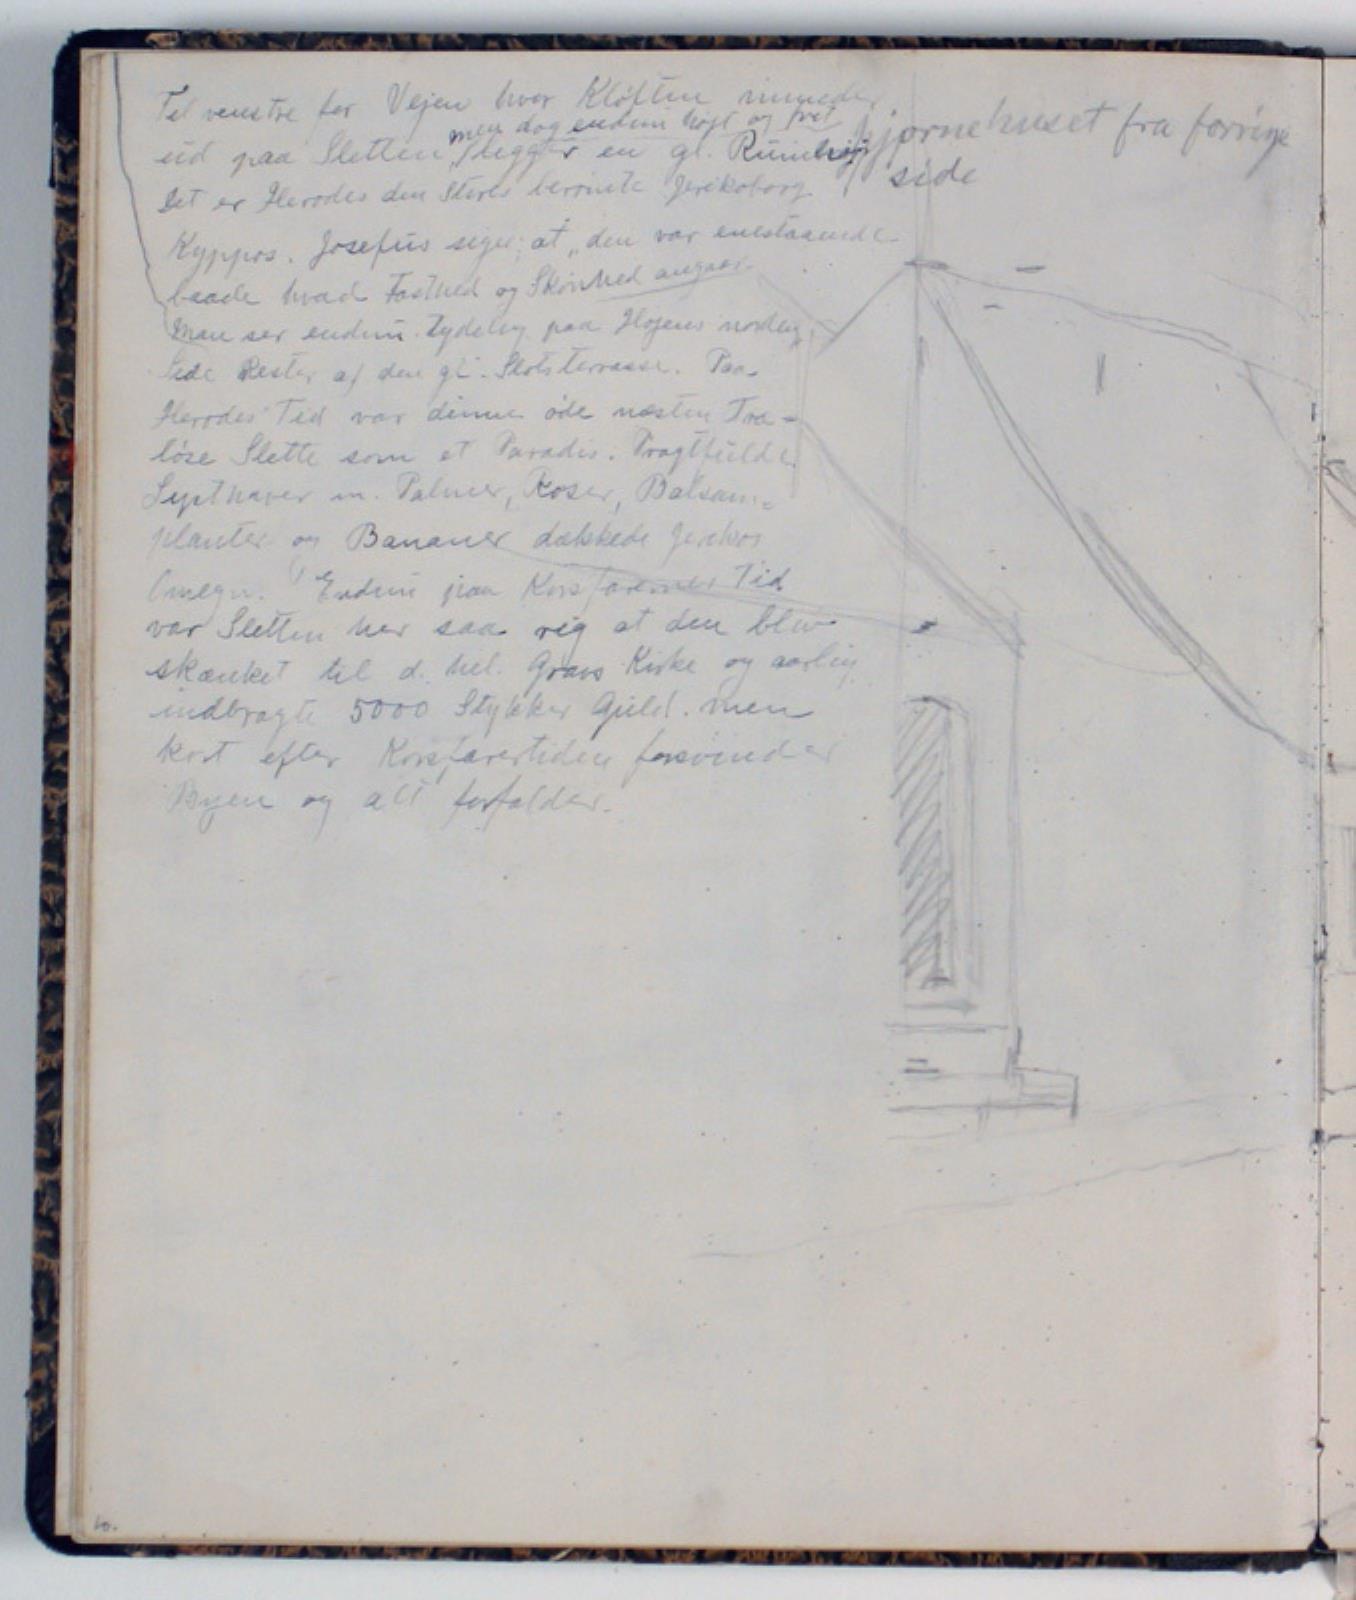 Til venstre for Vejen hvor Kløften munder
men dog endnu højt og frit
ud paa Sletten, ligger en gl. Ruinhøj
Det er Herodes den Stores berømte Jerikoborg
Kyppos. Josefus siger, at „den var enestaaende
baade hvad Fasthed og Skønhed angaar.
Man ser endnu tydelig paa Højens nordlig
Side Rester af den gl. Slotsterrasse. Paa
Herodes Tid var denne øde næsten Træ-
løse Slette som et Paradis. Pragtfulde
Lysthaver m. Palmer, Roser, Balsam-
planter og Bananer dækkede Jerikos
Omegn. Endnu paa Korsfarernes Tid
var Sletten her saa rig at den blev
skænket til d. hel. Gravs Kirke og aarlig
indbragte 5000 Stykker Guld. men
kort efter Korsfarertiden forsvinder
Byen og alt forfalder.
hjørnehuset fra forrige
side